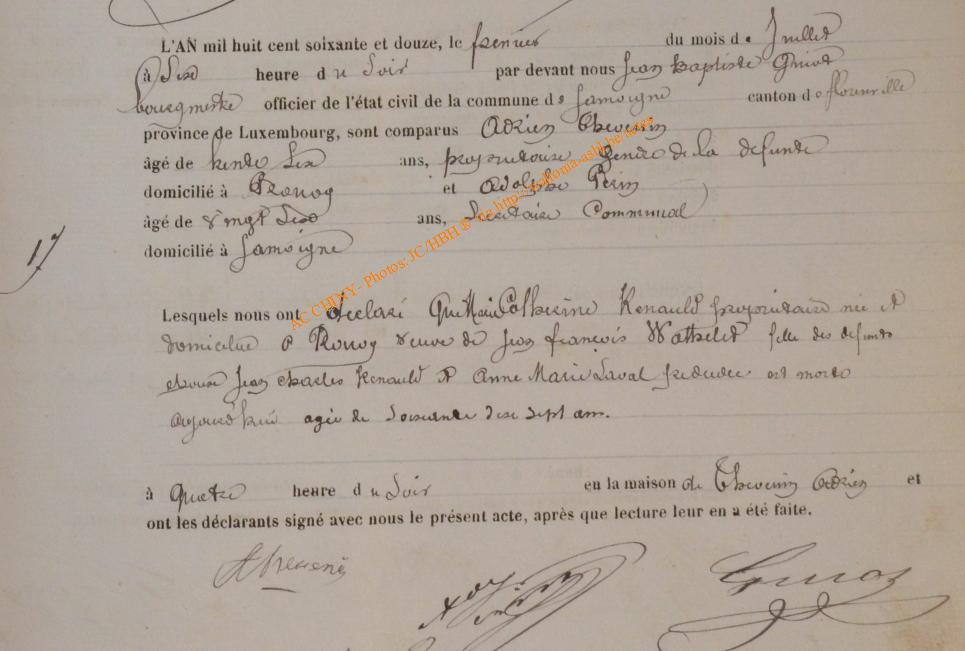 L'AN mil huit cent soixante et douze, le premier du mois de Juillet
à Six heure du Soir par devant nous Jean baptiste
bourgmestre officier de l'état civil de la commune de Jamoigne canton de florenville
province de Luxembourg, sont comparus Adrien Thevenin
âgé de trente Six ans, proprietaire Gendre de la defunte
domicilié à Prouvy et Adolphe Perin
âgé de vingt Six ans, Secretaire Communal
domicilié à Jamoigne
17
Lesquels nous ont declaré Que Marie Catherine Renauld proprietaire née et
domiciliée à Prouvy veuve de Jean françois Wathelet fille des defunts
epoux Jean Charles Renauld et Anne Marie Laval est morte
aujourd'hui agée de Soixante dix sept ans.
à Quatre heure du Soir en la maison de Thevenin Adrien et
ont les déclarants signé avec nous le présent acte, après que lecture leur en a été faite.
AThevenin
AC CHINY - Photos: JC/HBH